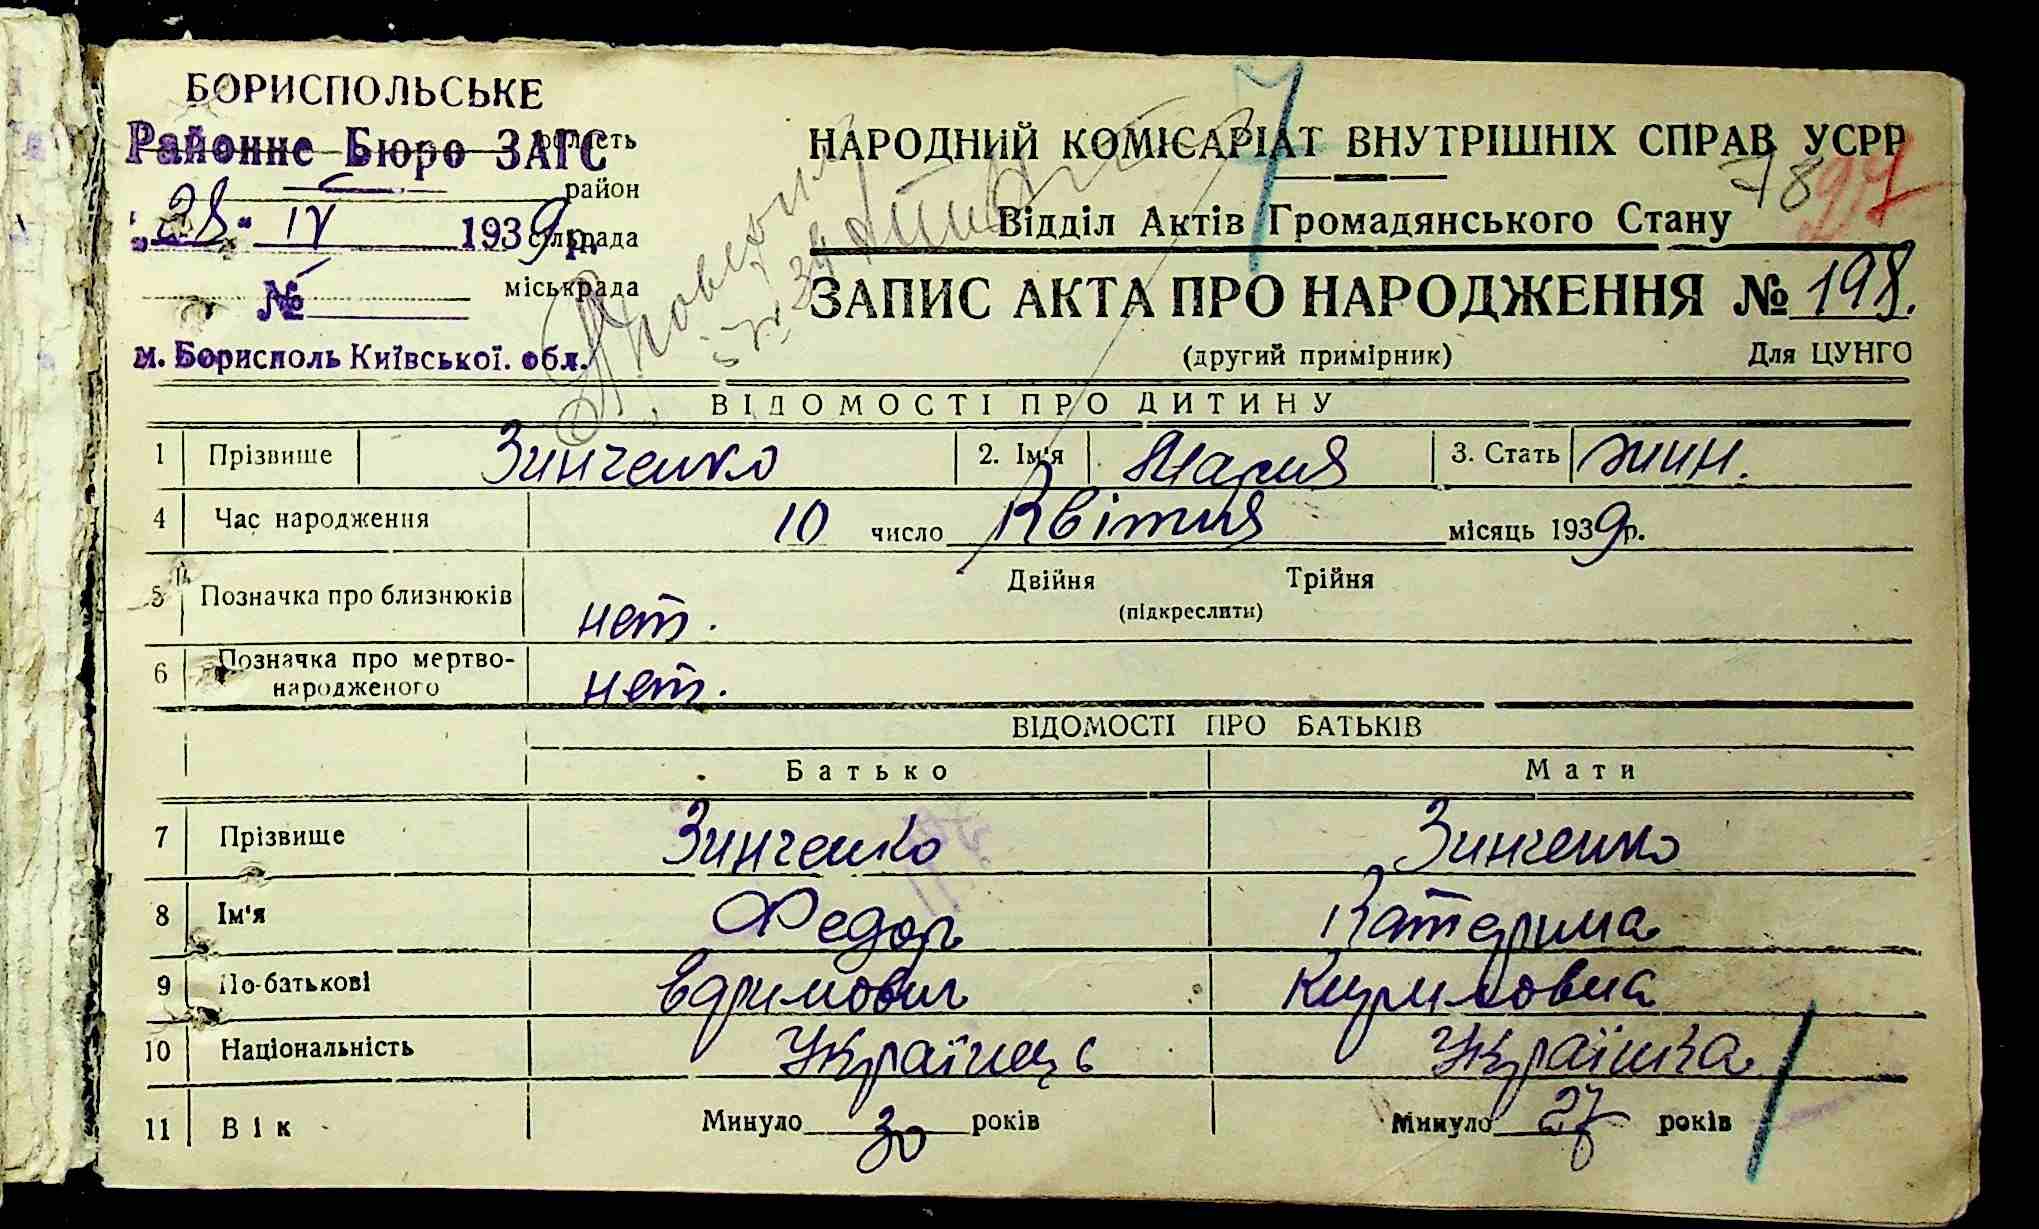 БОРИСПОЛЬСЬКЕ
Районне Бюро ЗАГС
область
район
"28" IV 1939р.
сільрада
міськрада
№
м. Борисполь Київської. обл.
НАРОДНИЙ КОМІСАРІАТ ВНУТРІШНІХ СПРАВ УСРР
78
27
Відділ Актів Громадянського Стану
ЗАПИС АКТА ПРО НАРОДЖЕННЯ № 198.
(другий примірник) Для ЦУНГО
ВІДОМОСТІ ПРО ДИТИНУ
1 Прізвище Зинченко 2. Ім'я Мария 3. Стать жин.
4 Час народження 10 число Квітня місяць 1939р.
5 Позначка про близнюків нет. Двійня Трійня
(підкреслити)
6 Позначка про мертво-
народженого нет.
ВІДОМОСТІ ПРО БАТЬКІВ
Батько Мати
7 Прізвище Зинченко Зинченко
8 Ім'я Федор Катерина
9 По-батькові Ефримович Кириловна
10 Національність Українець Українка
11 Вік Минуло 30 років Минуло 27 років